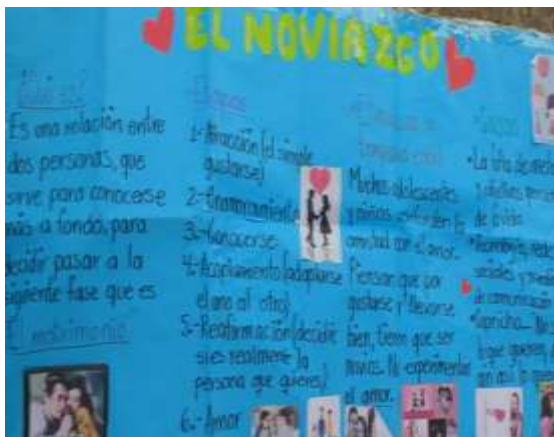 EL NOVIAZGO
¿Qué es?
Es una relación entre
dos personas, que
sirve para conocerse
más a fondo, para
decidir pasar a la
siguiente fase que es
El matrimonio
Etapas
1-Atracción (el simple
gustarse)
2-Enamoramiento
3-Conocerse
4-Acoplamiento (adaptarse
el uno al otro)
5-Reafirmación (decidir
si es realmente la
persona que quieres)
6-Amor
temprana edad
Muchas adolescentes
y niñas confunden la
amistad con el amor.
Piensan que por
gustarse y llevarse
bien, tienen que ser
novios. No experimentan
el amor.
Causas
•La falta de
de vida
sociales y
de comunicación
•Capricho
que quieren,